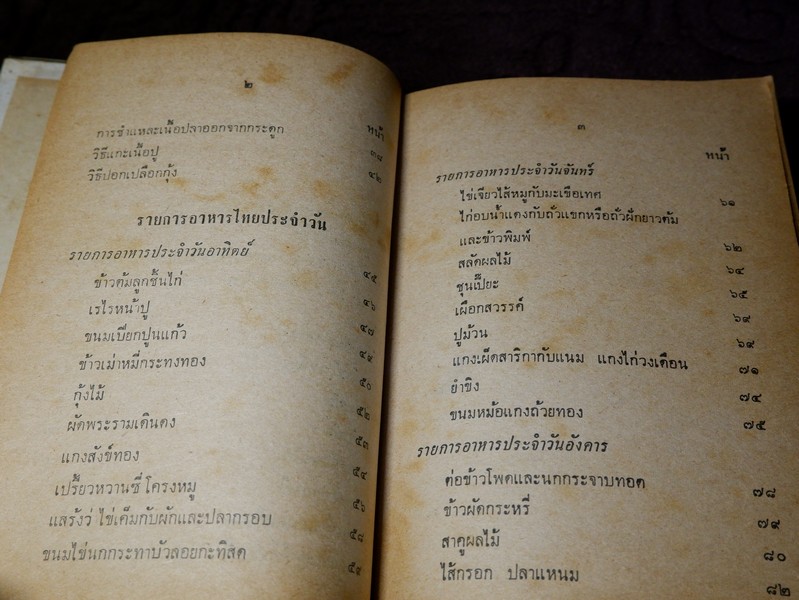 ๒
หน้า
การชำแหละเนื้อปลาออกจากกระดูก ๓๘
วิธีแกะเนื้อปู ๔๒
วิธีปอกเปลือกกุ้ง
รายการอาหารไทยประจำวัน
รายการอาหารประจำวันอาทิตย์ ๔๕
ข้าวต้มลูกชิ้นไก่ ๔๖
เรไรหน้าปู ๔๗
ขนมเบียกปูนแก้ว ๔๙
ข้าวเม่าหมี่กระทงทอง ๕๐
กุ้งไม้ ๕๒
ผัดพระรามเดินดง ๕๓
แกงสังข์ทอง ๕๔
เปรี้ยวหวานซี่โครงหมู ๕๖
แสร้งว่า ไข่เค็มกับผักและปลากรอบ ๕๘
ขนมไข่นกกระทาบัวลอยกะทิสด ๕๙
๓
หน้า
รายการอาหารประจำวันจันทร์
ไข่เจียวไส้หมูกับมะเขือเทศ ๖๑
ไก่อบน้ำแดงกับถั่วแขกหรือถั่วฝักยาวต้ม
และข้าวพิมพ์ ๖๒
สลัดผลไม้ ๖๔
ชุนเปี๊ยะ ๖๕
เผือกสวรรค์ ๖๙
ปูม้วน ๖๙
แกงเผ็ดสาริกากับแนม แกงไก่วงเดือน ๗๑
ยำขิง ๗๔
ขนมหม้อแกงถ้วยทอง ๗๕
รายการอาหารประจำวันอังคาร
ต่อข้าวโพดและนกกระจาบทอด ๗๘
ข้าวผัดกระหรี่ ๗๙
สาคูผลไม้ ๘๐
ไส้กรอก ปลาแหนม ๘๒